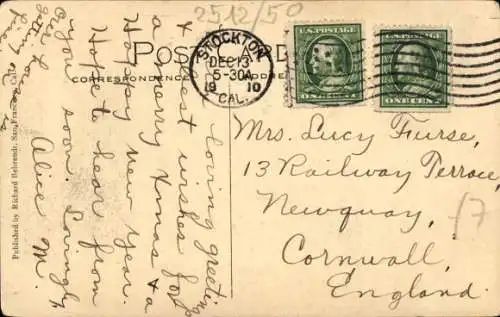 2512/50
POST CARD
CORRESPONDENCE
ADDRESS
STOCKTON
DEC 13
5-30A
1910
CAL.
U.S. POSTAGE
ONE CENT
U.S. POSTAGE
ONE CENT
Mrs. Lucy Furse,
13 Railway Terrace,
Newquay,
Cornwall,
England.
17
loving greeting
& best wishes for
a merry Xmas & a
Happy New Year.
Hope to hear from
you soon. Lovingly
Alice M.
Published by Richard Behrendt, San Francisco, Cal.